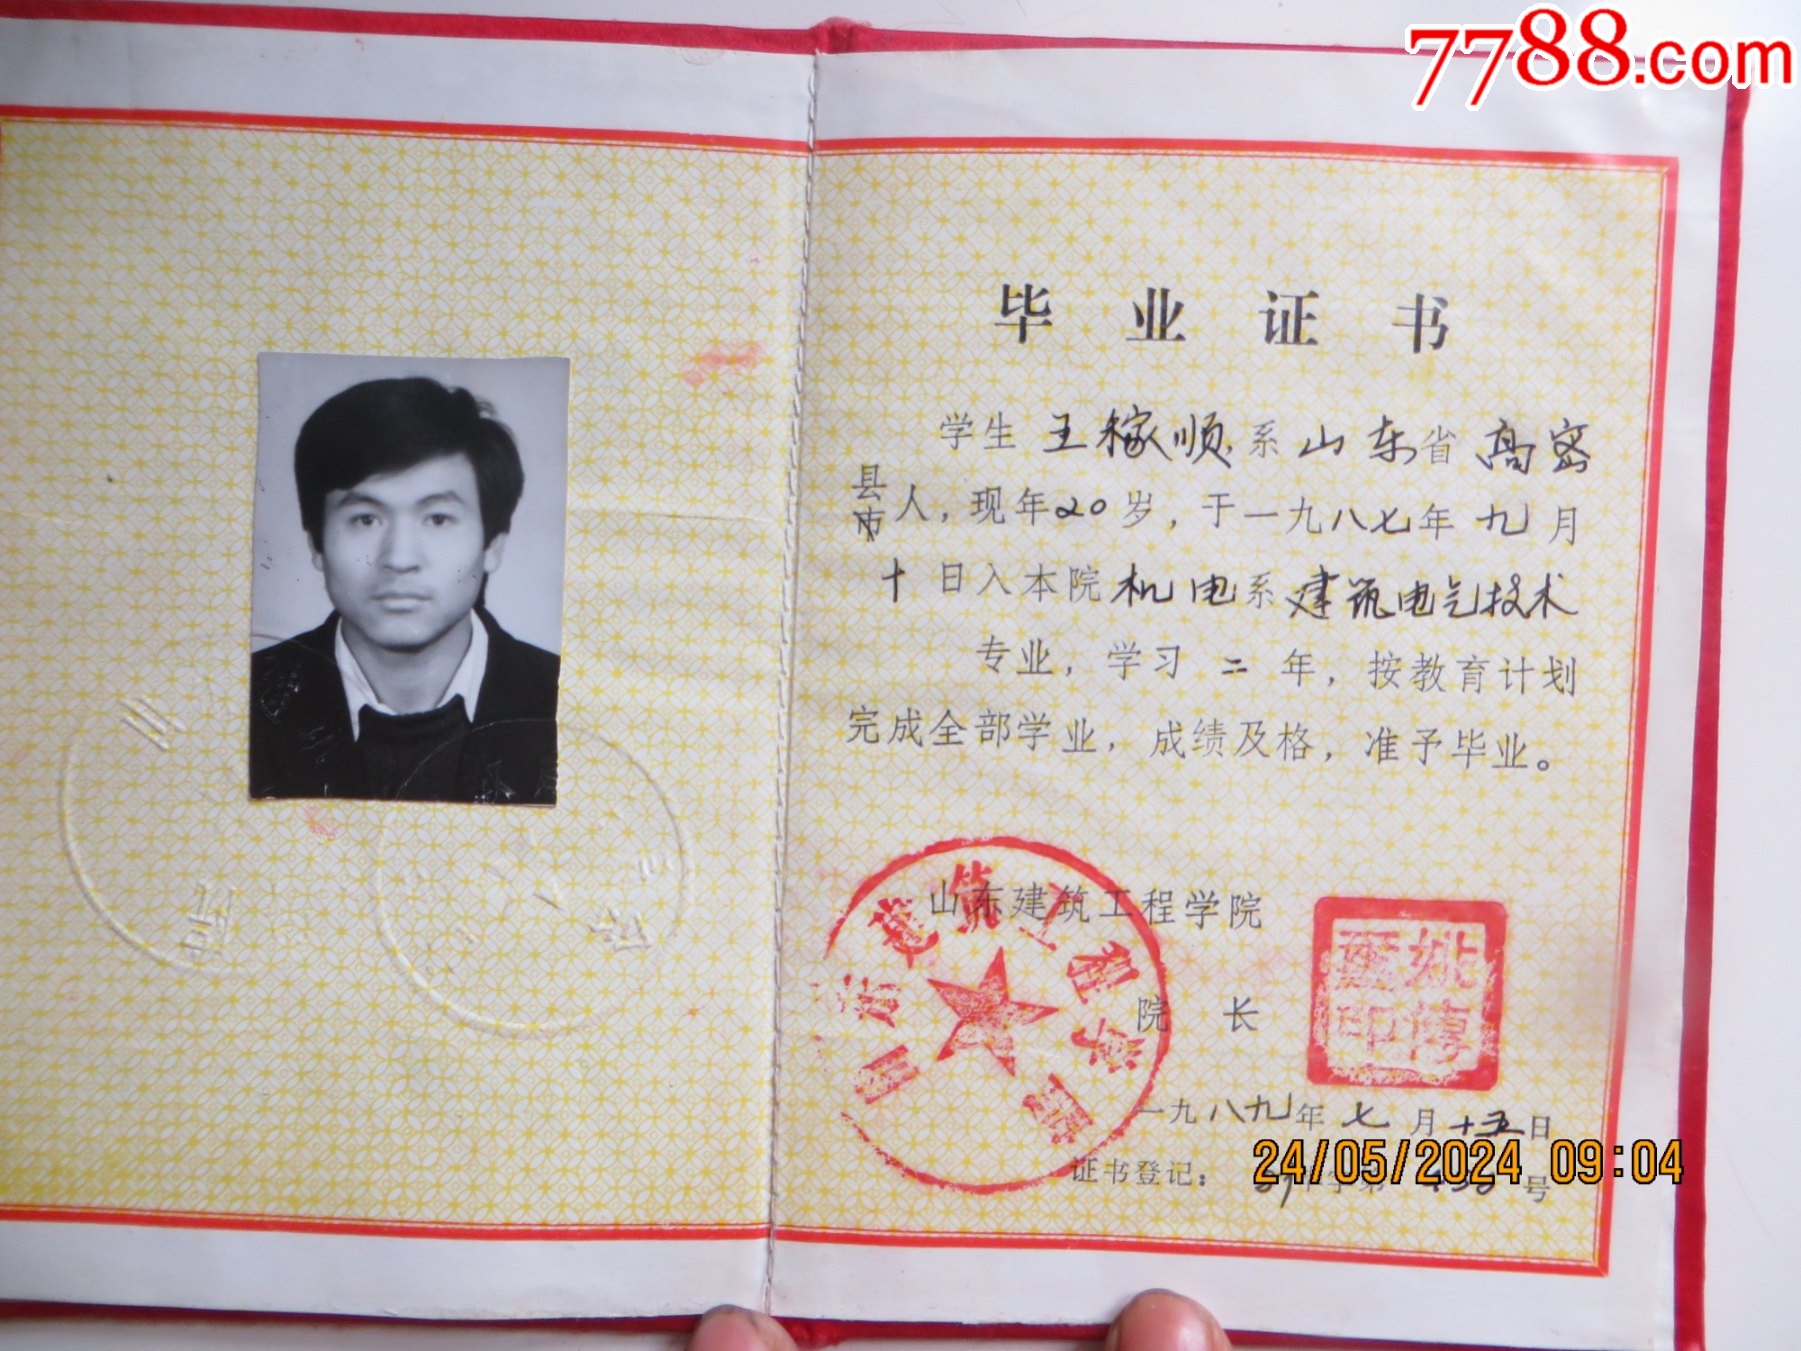 7788.com
毕业证书
学生 王稼顺 系 山东省 高密
县
市 人，现年20岁，于一九八七年 九 月
十 日入本院 机电系 建筑电气技术
专业，学习 二 年，按教育计划
完成全部学业，成绩及格，准予毕业。
山东建筑工程学院
山东建筑工程学院
院 长
姚博
印
一九八九年 七 月 十五日
证书登记： 号
24/05/2024 09:04